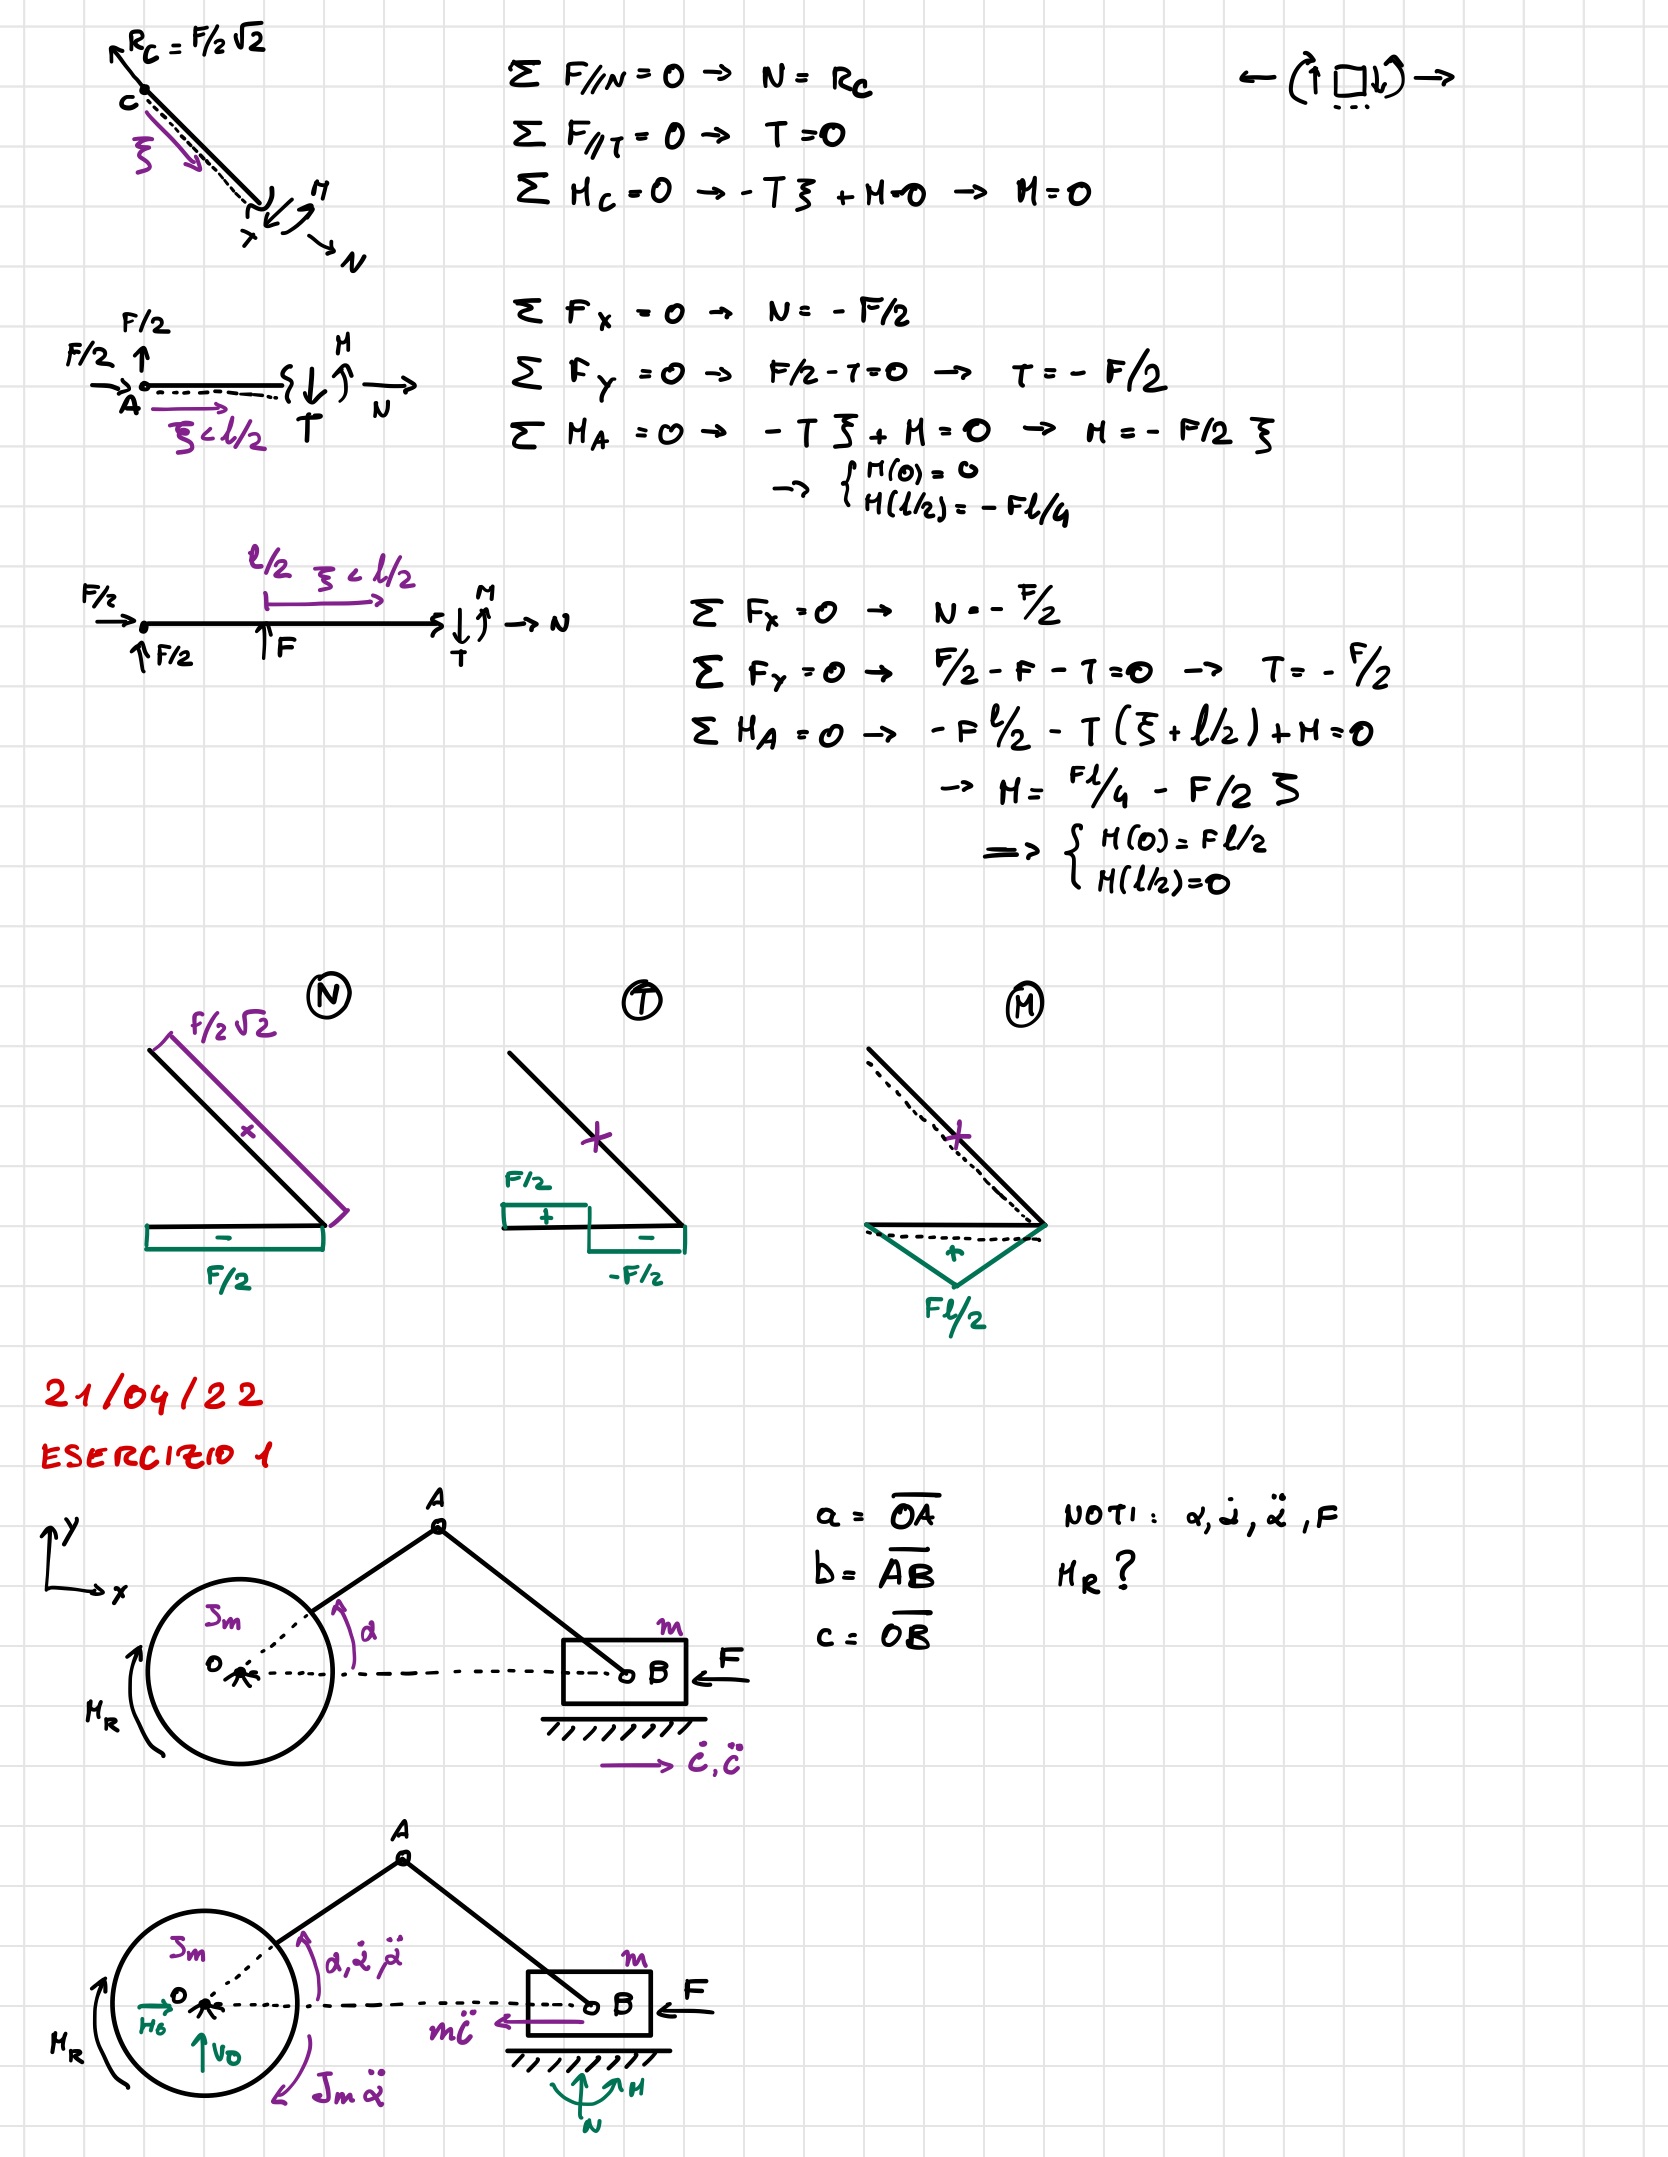 R_C = F/2 √2
C
ξ
M
T
N
Σ F//N = 0 → N = R_C
Σ F//T = 0 → T = 0
Σ M_C = 0 → - T ξ + M = 0 → M = 0
F/2
F/2
A
ξ < l/2
M
T
N
Σ F_x = 0 → N = - F/2
Σ F_y = 0 → F/2 - T = 0 → T = - F/2
Σ M_A = 0 → - T ξ + M = 0 → M = - F/2 ξ
→ { M(0) = 0
M(l/2) = - Fl/4
l/2 ξ < l/2
F/2
F/2
F
M
T
N
Σ F_x = 0 → N = - F/2
Σ F_y = 0 → F/2 - F - T = 0 → T = - F/2
Σ M_A = 0 → - F l/2 - T (ξ + l/2) + M = 0
→ M = Fl/4 - F/2 ξ
⇒ { M(0) = Fl/2
M(l/2) = 0
N
T
M
F/2 √2
+
-
F/2
F/2
+
-
-F/2
+
Fl/2
21/04/22
ESERCIZIO 1
y
x
A
J_m
O
α
M_R
m
B
F
ċ, c̈
a = \overline{OA}
b = \overline{AB}
c = \overline{OB}
NOTI: α, α̇, α̈, F
M_R ?
A
J_m
O
α, α̇, α̈
H_O
V_O
M_R
J_m α̈
m
mc̈
B
F
M
N